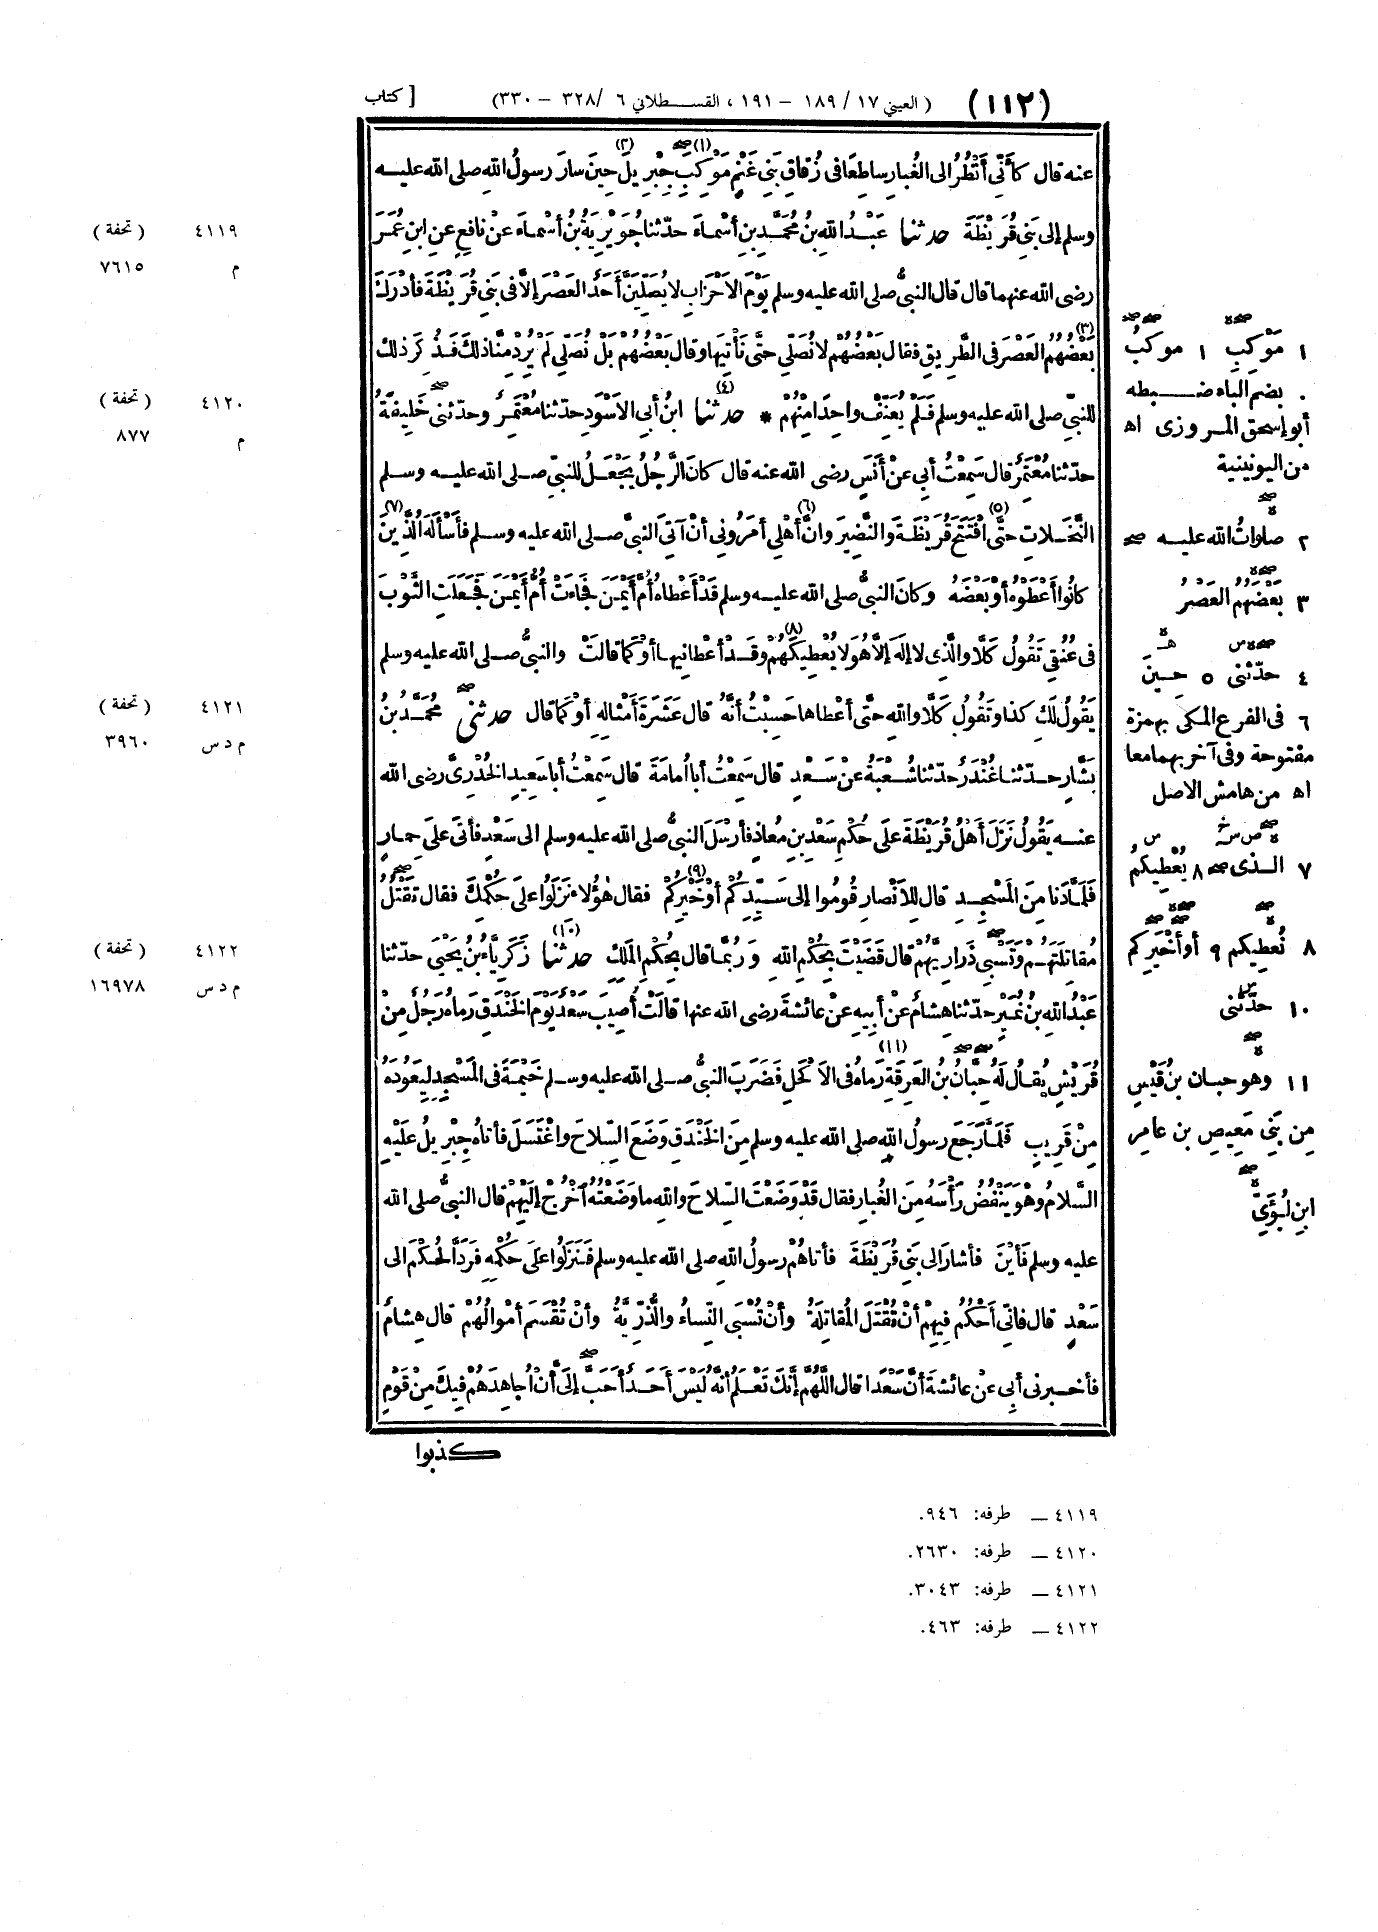 (١١٢) ( العيني ١٧/ ١٨٩ - ١٩١ ، القسطلاني ٦ /٣٢٨ - ٣٣٠) [ كتاب
عنه قال كَأَنِّي أَنْظُرُ الى الغُبارِ ساطِعًا في زُقاقِ بَنِي غَنْمٍ مَوْكِبِ (١) جِبْرِيلَ (٢) حِينَ سارَ رسولُ اللهِ صلى الله عليه
وسلم إلى بَنِي قُرَيْظَةَ حدثنا عَبْدُ اللهِ بنُ مُحَمَّدِ بنِ أَسْماءَ حدّثنا جُوَيْرِيَةُ بنُ أَسْماءَ عنْ نافِعٍ عنِ ابنِ عُمَرَ
رضى الله عنهما قال قال النبيُّ صلى الله عليه وسلم يَوْمَ الاَحْزابِ لا يُصَلِّيَنَّ أَحَدٌ العَصْرَ إلاَّ في بَنِي قُرَيْظَةَ فأَدْرَكَ
بَعْضُهُمُ (٣) العَصْرَ في الطَّرِيقِ فقال بَعْضُهُمْ لا نُصَلِّي حتَّى نَأْتِيَها وقال بَعْضُهُمْ بَلْ نُصَلِّي لَمْ يُرِدْ مِنَّا ذلك فَذُكِرَ ذلك
للنبيِّ صلى الله عليه وسلم فَلَمْ يُعَنِّفْ واحِدًا مِنْهُمْ * حدثنا (٤) ابنُ أبي الاَسْوَدِ حدّثنا مُعْتَمِرٌ وحدّثني خَلِيفَةُ
حدّثنا مُعْتَمِرٌ قال سَمِعْتُ أبي عنْ أَنَسٍ رضى الله عنه قال كانَ الرَّجُلُ يَجْعَلُ للنبيِّ صلى الله عليه وسلم
النَّخَلاتِ حتَّى (٥) افْتَتَحَ قُرَيْظَةَ والنَّضِيرَ وانَّ (٦) أهْلِي أمَرُوني أنْ آتِيَ النبيَّ صلى الله عليه وسلم فأَسْأَلَهُ الَّذِينَ (٧)
كانُوا أعْطَوْهُ أوْ بَعْضَهُ وكانَ النبيُّ صلى الله عليه وسلم قَدْ أعْطاهُ أُمَّ أيْمَنَ فَجاءَتْ أُمُّ أيْمَنَ فَجَعَلَتِ الثَّوْبَ
في عُنُقِي تَقُولُ كَلاَّ والَّذِي لا إلَهَ إلاَّ هُوَ لا يُعْطِيكَهُمْ (٨) وقَدْ أعْطانِيها أوْ كَما قالَتْ والنبيُّ صلى الله عليه وسلم
يَقُولُ لَكِ كذا وتَقُولُ كَلاَّ واللهِ حتَّى أعْطاها حَسِبْتُ أنَّهُ قال عَشَرَةَ أمْثالِهِ أوْ كَما قال حدثني مُحَمَّدُ بنُ
بَشَّارٍ حدّثنا غُنْدَرٌ حدّثنا شُعْبَةُ عنْ سَعْدٍ قال سَمِعْتُ أبا أُمامَةَ قال سَمِعْتُ أبا سَعِيدٍ الخُدْرِيَّ رضى الله
عنه يَقُولُ نَزَلَ أهْلُ قُرَيْظَةَ على حُكْمِ سَعْدِ بنِ مُعاذٍ فأَرْسَلَ النبيُّ صلى الله عليه وسلم الى سَعْدٍ فأَتَى على حِمارٍ
فَلَمَّا دَنا مِنَ المَسْجِدِ قال لِلاَنْصارِ قُومُوا إلى سَيِّدِكُمْ أوْ خَيْرِكُمْ (٩) فقال هٰؤُلاءِ نَزَلُوا على حُكْمِكَ فقال تَقْتُلُ
مُقاتِلَتَهُمْ وتَسْبِي ذَرارِيَّهُمْ قال قَضَيْتَ بِحُكْمِ اللهِ وَرُبَّما قال بِحُكْمِ المَلِكِ حدثنا (١٠) زَكَرِيَّاءُ بنُ يَحْيَى حدّثنا
عَبْدُ اللهِ بنُ نُمَيْرٍ حدّثنا هِشامٌ عنْ أبِيهِ عنْ عائشةَ رضى الله عنها قالَتْ أُصِيبَ سَعْدٌ يَوْمَ الخَنْدَقِ رَماهُ رَجُلٌ مِنْ
قُرَيْشٍ يُقالُ لَهُ حِبَّانُ بنُ العَرِقَةِ (١١) رَماهُ في الاَكْحَلِ فَضَرَبَ النبيُّ صلى الله عليه وسلم خَيْمَةً في المَسْجِدِ لِيَعُودَهُ
مِنْ قَرِيبٍ فَلَمَّا رَجَعَ رسولُ اللهِ صلى الله عليه وسلم مِنَ الخَنْدَقِ وَضَعَ السِّلاحَ واغْتَسَلَ فأَتاهُ جِبْرِيلُ عَلَيْهِ
السَّلامُ وهْوَ يَنْفُضُ رَأْسَهُ مِنَ الغُبارِ فقال قَدْ وَضَعْتَ السِّلاحَ واللهِ ما وَضَعْتُهُ اخْرُجْ إلَيْهِمْ قال النبيُّ صلى الله
عليه وسلم فَأَيْنَ فأَشارَ إلى بَنِي قُرَيْظَةَ فأَتاهُمْ رسولُ اللهِ صلى الله عليه وسلم فَنَزَلُوا على حُكْمِهِ فَرَدَّ الحُكْمَ الى
سَعْدٍ قال فإنِّي أحْكُمُ فِيهِمْ أنْ تُقْتَلَ المُقاتِلَةُ وأنْ تُسْبَى النِّساءُ والذُّرِّيَّةُ وأنْ تُقْسَمَ أمْوالُهُمْ قال هِشامٌ
فأَخبرني أبي عنْ عائشةَ أنَّ سَعْدًا قال اللَّهُمَّ إنَّكَ تَعْلَمُ أنَّهُ لَيْسَ أحَدٌ أحَبَّ إلَيَّ أنْ أُجاهِدَهُمْ فِيكَ مِنْ قَوْمٍ
كذبوا
١ مَوْكِبِ ١ موكبُ
. بضم الباء ضبطه
أبو إسحق المروزى اه
من اليونينية
٢ صلواتُ الله عليه
٣ بَعْضَهُم العصرُ
٤ حدّثنى ٥ حِينَ
٦ فى الفرع المكى بهمزة
مفتوحة وفى آخر بهما معا
اه من هامش الاصل
٧ الذى ٨ يُعْطِيكُمُ
٨ نُعطِيكم ٩ أو أَخْيَرِكم
١٠ حدّثنى
١١ وهو حبان بنُ قَيْسٍ
مِن بَنِي مَعِيصِ بن عامِرِ
ابنِ لُؤَيٍّ
٤١١٩ (تحفة)
م ٧٦١٥
٤١٢٠ (تحفة)
م ٨٧٧
٤١٢١ (تحفة)
م د س ٣٩٦٠
٤١٢٢ (تحفة)
م د س ١٦٩٧٨
٤١١٩ — طرفه: ٩٤٦.
٤١٢٠ — طرفه: ٢٦٣٠.
٤١٢١ — طرفه: ٣٠٤٣.
٤١٢٢ — طرفه: ٤٦٣.